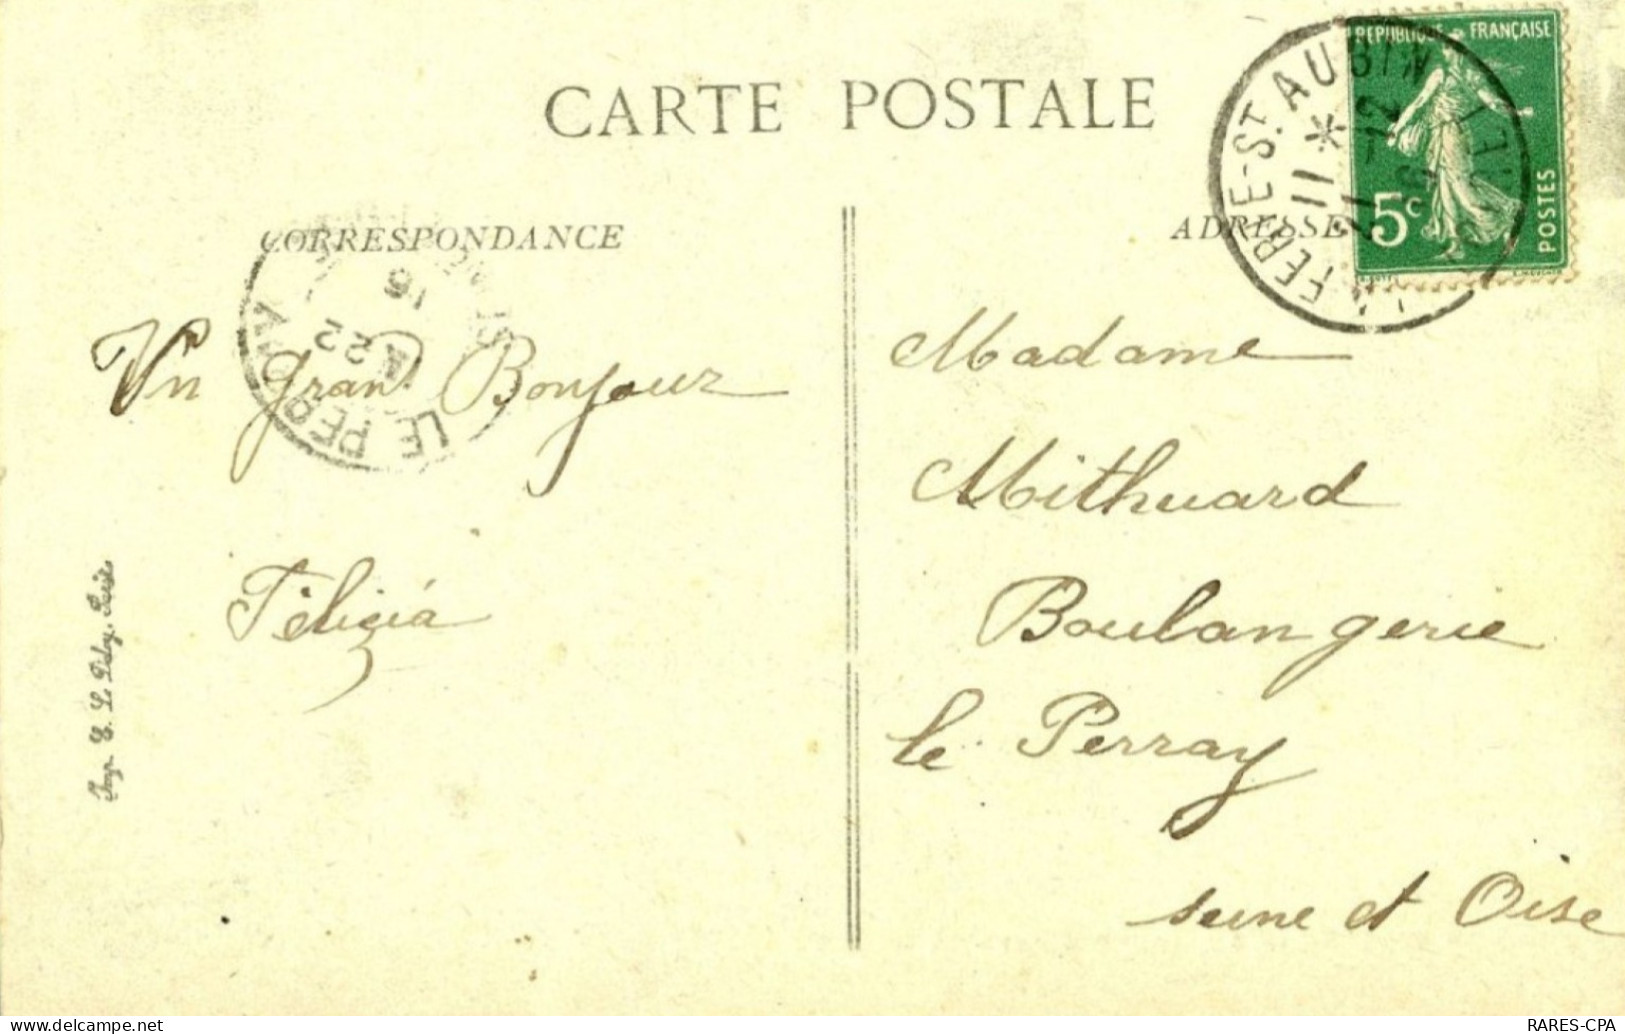 CARTE POSTALE
CORRESPONDANCE
ADRESSE
RÉPUBLIQUE FRANÇAISE
5c
POSTES
FERTE-ST. AUBIN
11 *
LE PER
22
16
Un Gran Bonjour
Félizia
Madame
Mithuard
Boulangerie
le Perray
seine et Oise
Imp. E. Le Deley, Paris
RARES-CPA